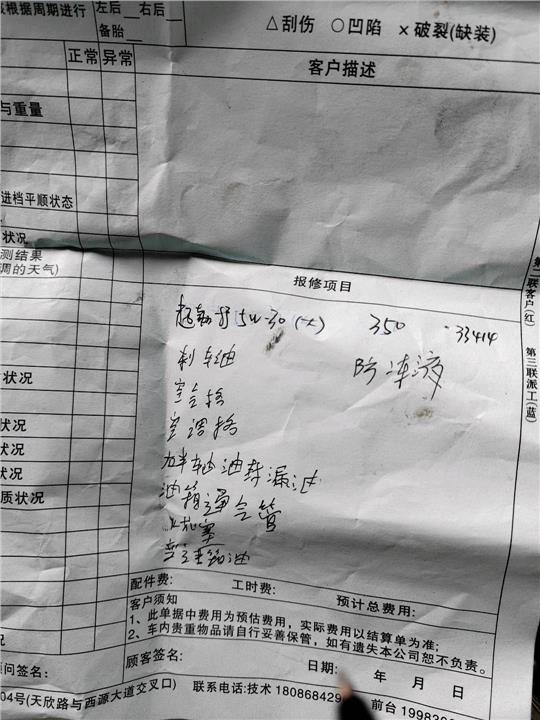 该根据周期进行
左后 右后
备胎
△刮伤 ○凹陷 ×破裂(缺装)
正常 异常
客户描述
与重量
进档平顺状态
状况
测结果
调的天气)
报修项目
5W-30 350 33414
刹车油
防冻液
空气格
空调格
状况
半轴油封漏油
油箱通气管
状况
状况
质状况
变速箱油
配件费: 工时费: 预计总费用:
客户须知
1、此单据中费用为预估费用，实际费用以结算单为准;
2、车内贵重物品请自行妥善保管，如有遗失本公司恕不负责。
况
顾问签名: 顾客签名: 日期: 年 月 日
04号(天欣路与西源大道交叉口) 联系电话:技术 180868429 前台 19983
联客户(红) 第三联派工(蓝)